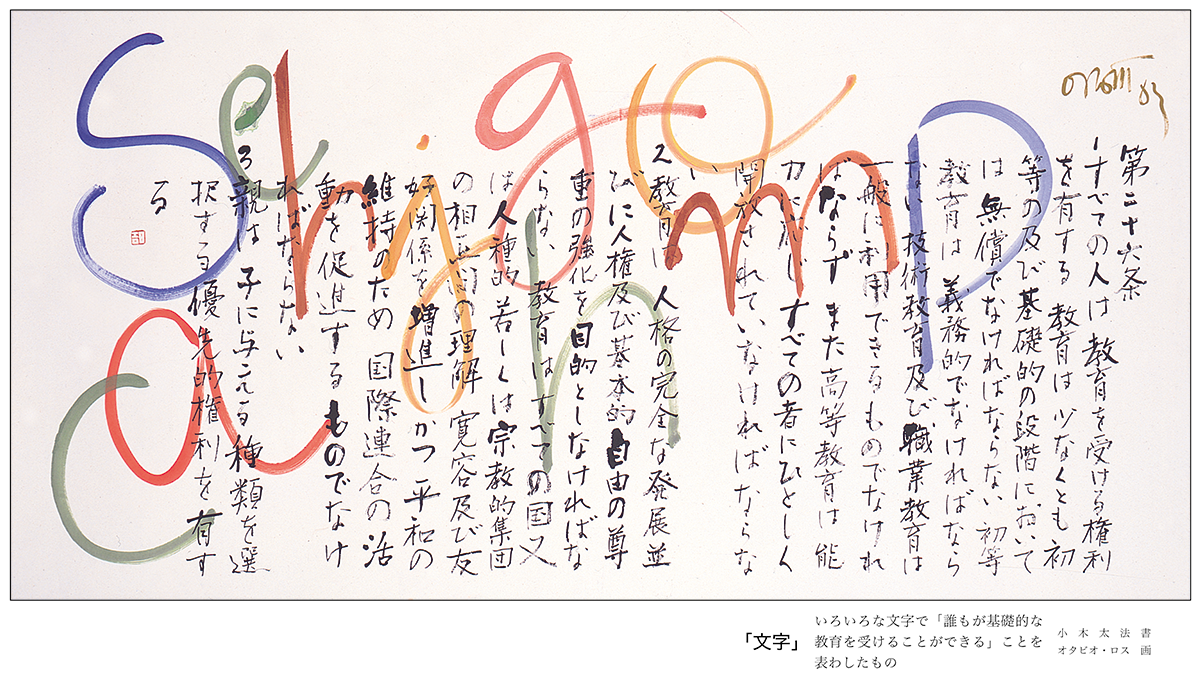 第二十六条
1すべての人は 教育を受ける権利
を有する 教育は 少なくとも 初
等の及び基礎的の段階において
は 無償でなければならない 初等
教育は 義務的でなければなら
ない 技術教育及び職業教育は
一般に利用できるものでなけれ
ばならず また高等教育は能
力に応じ すべての者にひとしく
開放されていなければならな
い
2教育は 人格の完全な発展並
びに人権及び基本的自由の尊
重の強化を目的としなければな
らない 教育は すべての国又
は人種的 若しくは宗教的集団
の相互間の理解 寛容及び友
好関係を増進し かつ 平和の
維持のため 国際連合の活
動を促進する ものでなけ
ればならない
3親は 子に与える種類を選
択する優先的権利を有す
る
「文字」
いろいろな文字で「誰もが基礎的な
教育を受けることができる」ことを
表わしたもの
小木太法 書
オタビオ・ロス 画